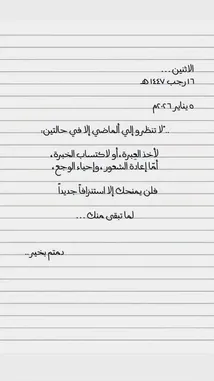 الاثنين ...
١٦ رجب ١٤٤٧هـ
٥ يناير ٢٠٢٦م
.."لا تنظرو إلي ألماضي إلا في حالتين:
لأخذ العِبرة، أو لاكتساب الخبرة،
أمّا إعادة الشعور، وإحياء الوجع،
فلن يمنحك إلا استنزافاً جديداً
لما تبقى منك ...
دمتم بخير..